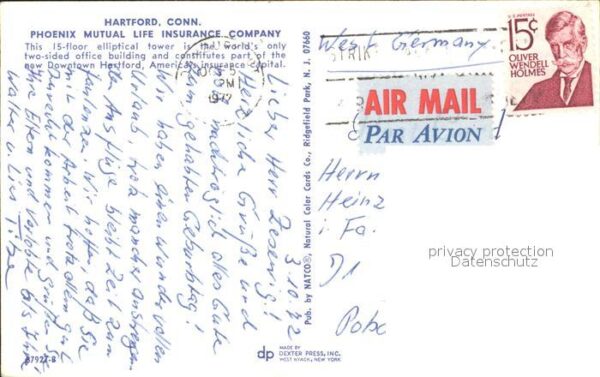 HARTFORD, CONN.
PHOENIX MUTUAL LIFE INSURANCE COMPANY
This 15-floor elliptical tower is the world's only
two-sided office building and constitutes part of the
new Downtown Hartford, America's insurance capital.
3.10.72
Lieber Herr
Herzliche Grüße und
nachträglich alles Gute
zum gehabten Geburtstag!
Wir haben einen wundervollen
Urlaub, trotz mancher anstrengen-
den Ausflüge bleibt Zeit zum
Faulenzen. Wir hoffen, daß Sie
mit der Arbeit trotz allem gut
zurecht kommen und grüßen Sie,
Ihre Eltern und Verlobte als Ihre
Walter u. Lisa
87927-B
Pub. by NATCO®, Natural Color Cards Co., Ridgefield Park, N. J. 07660
dp
MADE BY
DEXTER PRESS, INC.
WEST NYACK, NEW YORK
PM
1972
West Germany
U.S. POSTAGE
15¢
OLIVER
WENDELL
HOLMES
AIR MAIL
PAR AVION
Herrn
Heinz
i. Fa.
privacy protection
Datenschutz